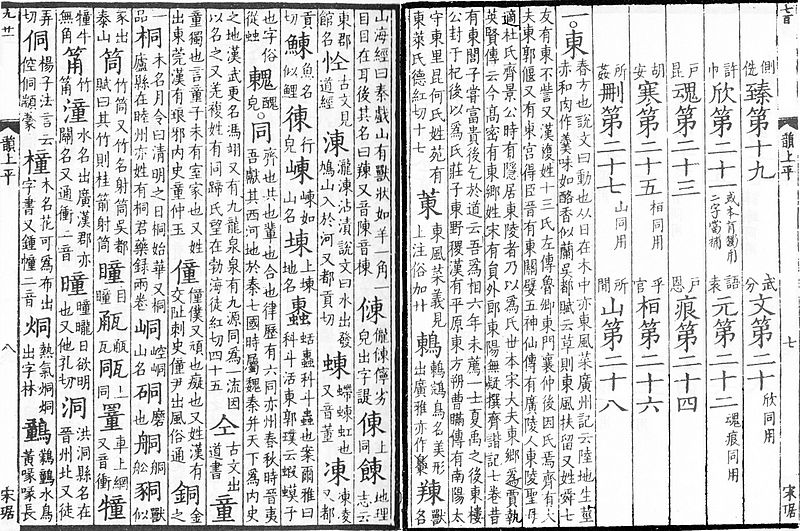 側詵臻第十九　武分文第二十欣同用
許巾欣第二十一　語袁元第二十二魂痕同用
戶昆魂第二十三　戶恩痕第二十四
胡安寒第二十五桓同用　胡官桓第二十六
所姦刪第二十七山同用　所閒山第二十八
一〇東春方也說文曰動也从日在木中亦東風菜廣州記云陸地生莖赤和肉作羹味如酪香似蘭吳都賦云草則東風扶留又姓舜七
友有東不訾又漢複姓十三氏左傳魯卿東門襄仲後因氏焉齊有大夫東郭偃又有東宮得臣晉有東關嬖五神仙傳有廣陵人東陵聖母
適杜氏齊景公時有隱居東陵者乃以為氏世本宋大夫東鄉為賈執英賢傳云今高密有東鄉姓宋有員外郎東陽無疑撰齊諧記七卷昔
有東閭子嘗富貴後乞於道云吾為相六年未薦一士夏禹之後東樓公封于杞後以為氏莊子東野稷漢有平原東方朔曹瞞傳有南陽太
守東里昆何氏姓苑有東萊氏德紅切十七菄東風菜義見上注俗加艹鶇鶇鵍鳥名美形出廣雅亦作䍶獸名
七
宋琚
韻上平
八
宋琚
山海經曰秦戲山有獸狀如羊一角一目目在耳後其名曰䍶又音陳音棟倲儱倲儜劣皃出字諟倲上同餗地理志云
東郡館名㣠古文見道經涷瀧涷沾漬說文曰水出發鳩山入於河又都貢切蝀螮蝀虹也又音董凍凍凌又都
貢切鯟魚名似鯉徚行皃崠崠如山名埬上埬地名科斗蟲也案爾雅曰科斗活東郭璞云蝦蟆子
也字俗從蟲䰤醜皃〇同齊也共也輩也合也律歷有六同亦州春秋時晉夷吾獻其西河地於秦七國時屬魏秦并天下為內史
之地漢武更名馮翊又有九龍泉泉有九源同為一流因以名之又羌複姓有同蹄氏望在勃海徒紅切四十五仝古文出道書童
童獨也言童子未有室家也又姓出東莞漢有琅邪內史童仲玉僮僮僕又頑也癡也又姓漢有交阯刺史僮尹出風俗通銅金
品桐木名月令曰清明之日桐始華又桐廬縣在睦州亦姓有桐君藥錄兩卷峒崆峒山名硐磨也獸似
豕出泰山筒竹筒又竹名射筒吳都賦曰其竹則桂箭射筒瞳目瞳㼧上同罿車上網又音衝犝
犝牛無角筩竹筩潼水名出廣漢郡亦關名又通衝二音曈曈曨日欲明也又他孔切洞洪洞縣名在晉州北又徒
弄切侗楊子法言云倥侗顓蒙橦木名花可為布出字書又鍾幢二音烔熱氣烔烔出字林水鳥黃喙喙長